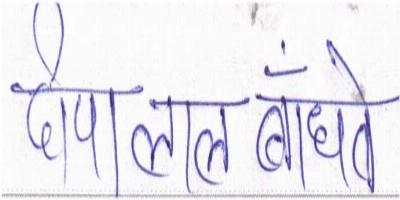 दीपा लाल बाँधते